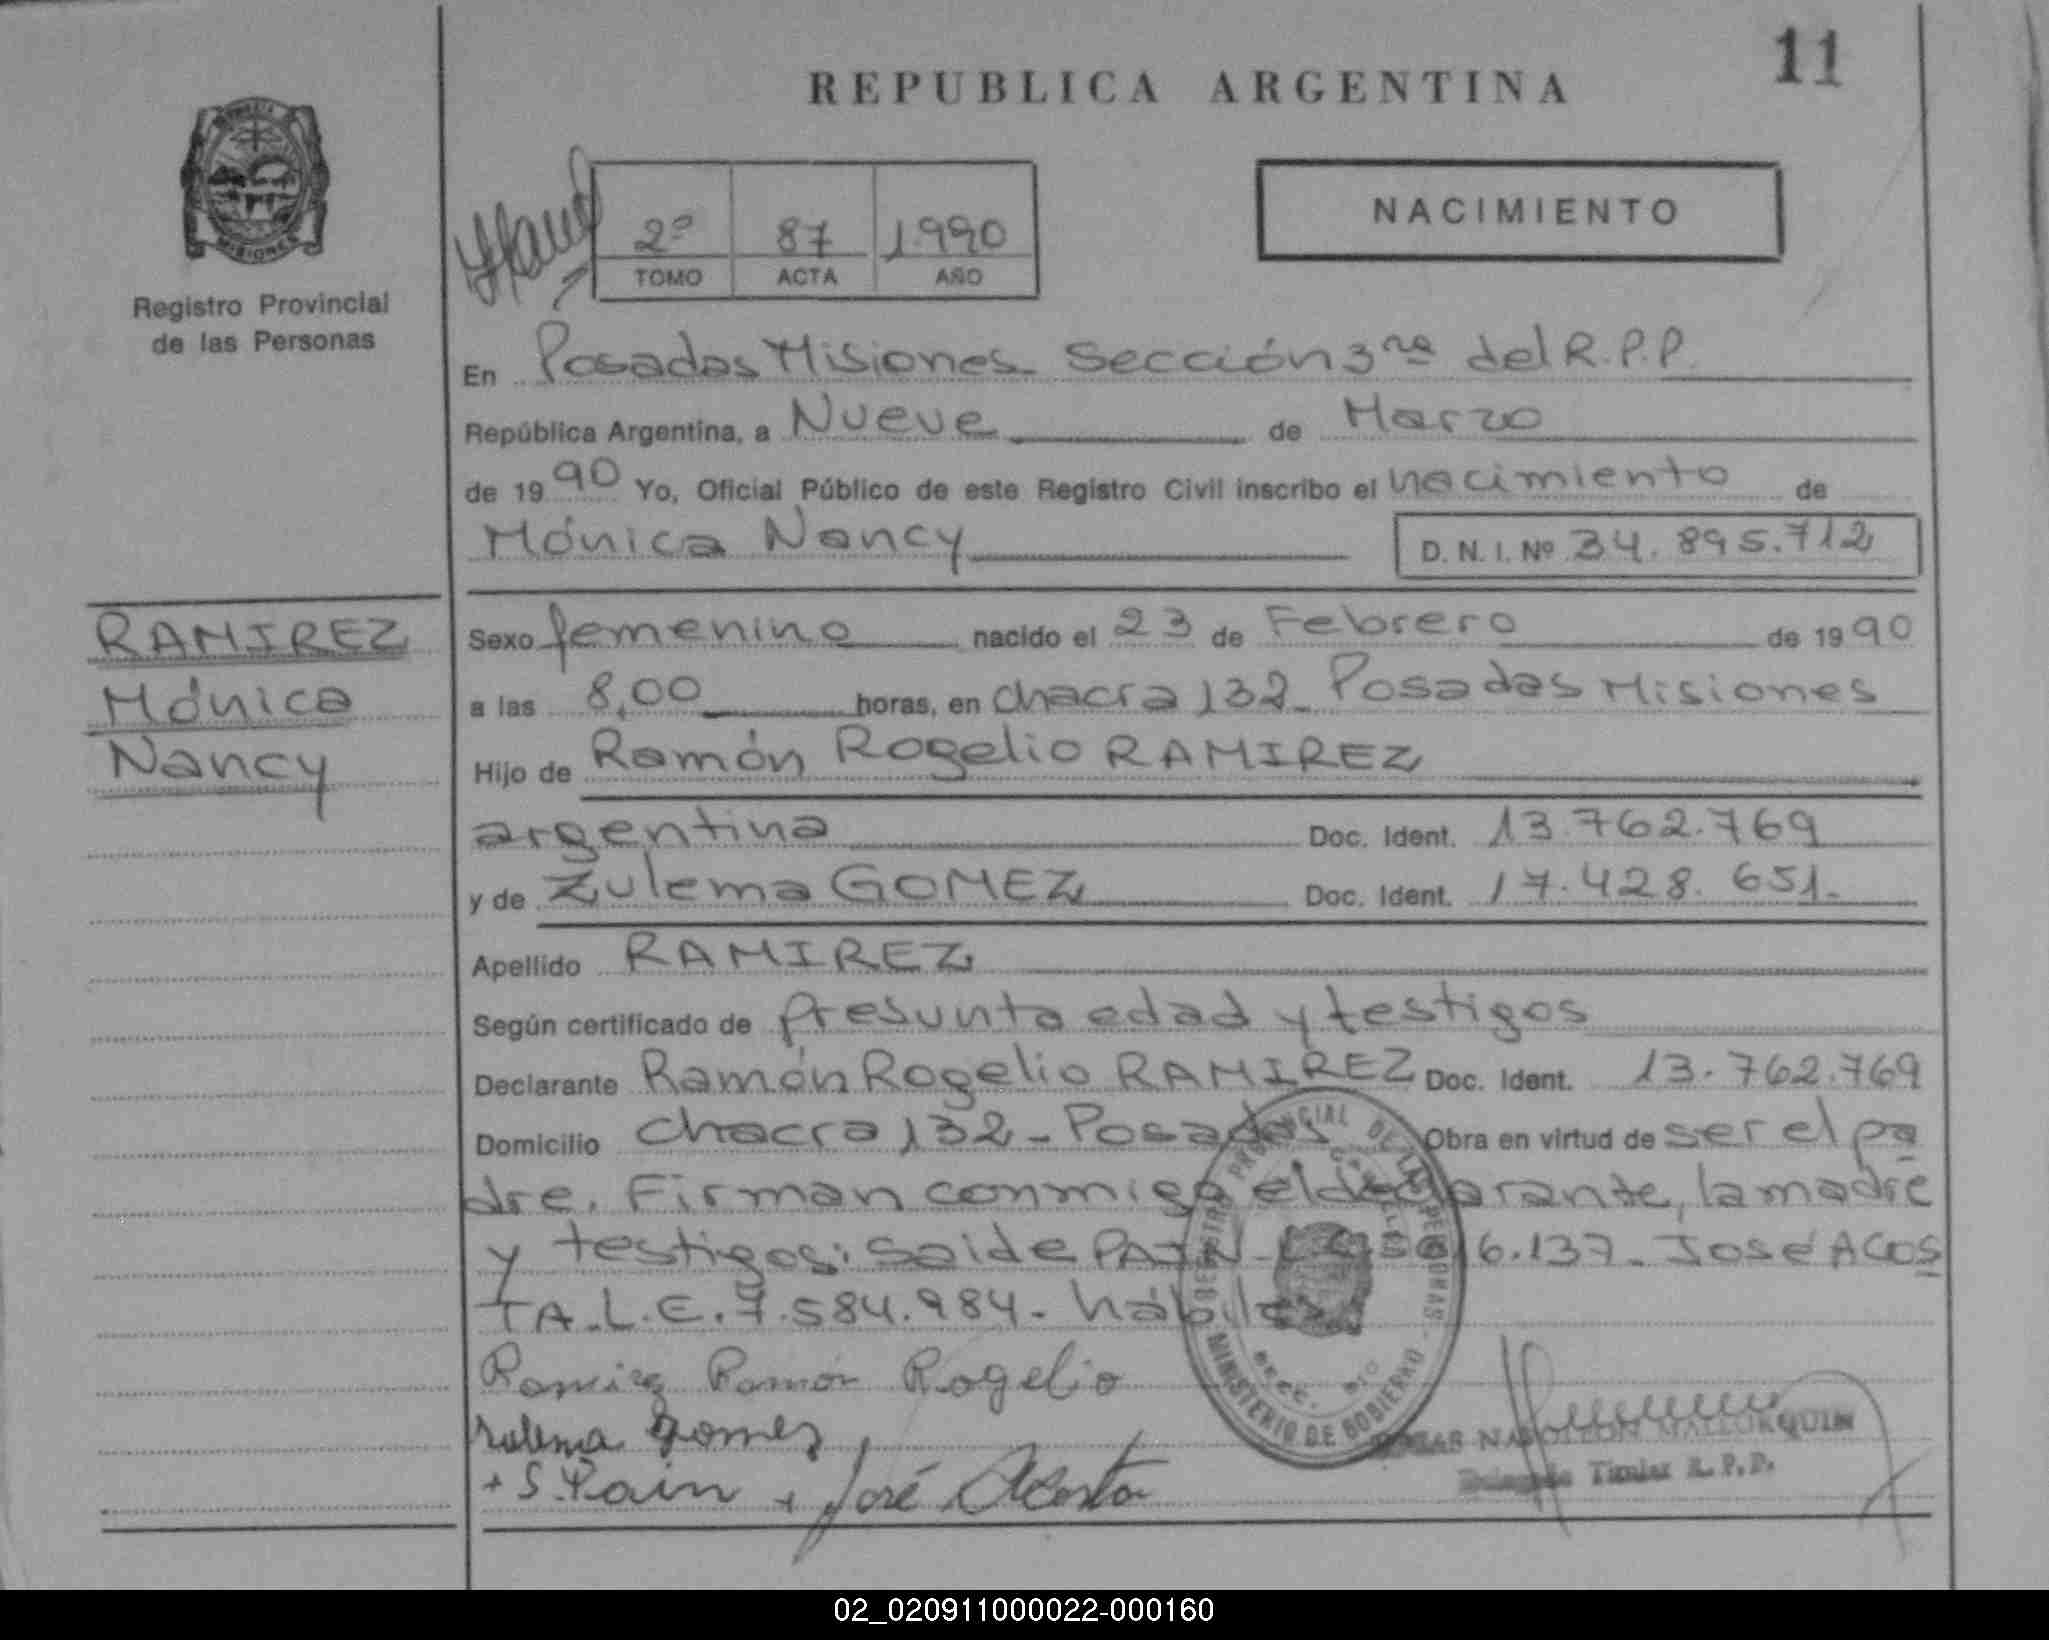 11
REPUBLICA ARGENTINA
NACIMIENTO
2º 87 1990
TOMO ACTA AÑO
MISIONES
Registro Provincial
de las Personas
En Posadas Misiones Sección 3ra del R.P.P.
República Argentina, a Nueve de Marzo
de 1990 Yo, Oficial Público de este Registro Civil inscribo el nacimiento de
Mónica Nancy D.N.I. Nº 34.895.712
RAMIREZ
Mónica
Nancy
Sexo femenino nacido el 23 de Febrero de 1990
a las 8,00 horas, en chacra 132- Posadas Misiones
Hijo de Ramón Rogelio RAMIREZ
argentina Doc. Ident. 13.762.769
y de Zulema GOMEZ Doc. Ident. 17.428.651-
Apellido RAMIREZ
Según certificado de presunta edad y testigos
Declarante Ramón Rogelio RAMIREZ Doc. Ident. 13.762.769
Domicilio chacra 132- Posadas Obra en virtud de ser el pa
dre. Firman conmigo el declarante, la madre
y testigos: Saide PAIN- 6.137- José ACOS
TA. L.E. 7.584.984- hábiles
REGISTRO PROVINCIAL DE LAS PERSONAS
MINISTERIO DE GOBIERNO
Ramirez Ramón Rogelio
Zulema Gomez
+ S. Pain + José Acosta
NAPOLEON MALLORQUIN
Delegado Titular R.P.P.
02_020911000022-000160